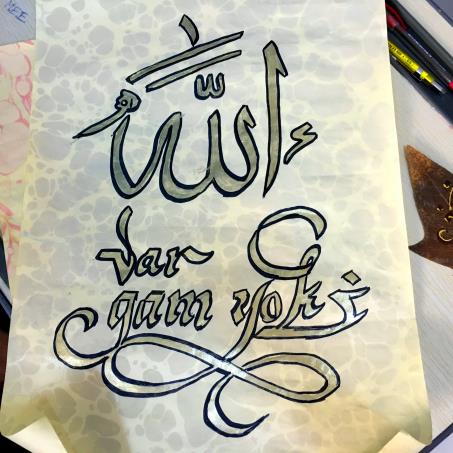 الله
var
gam yoki